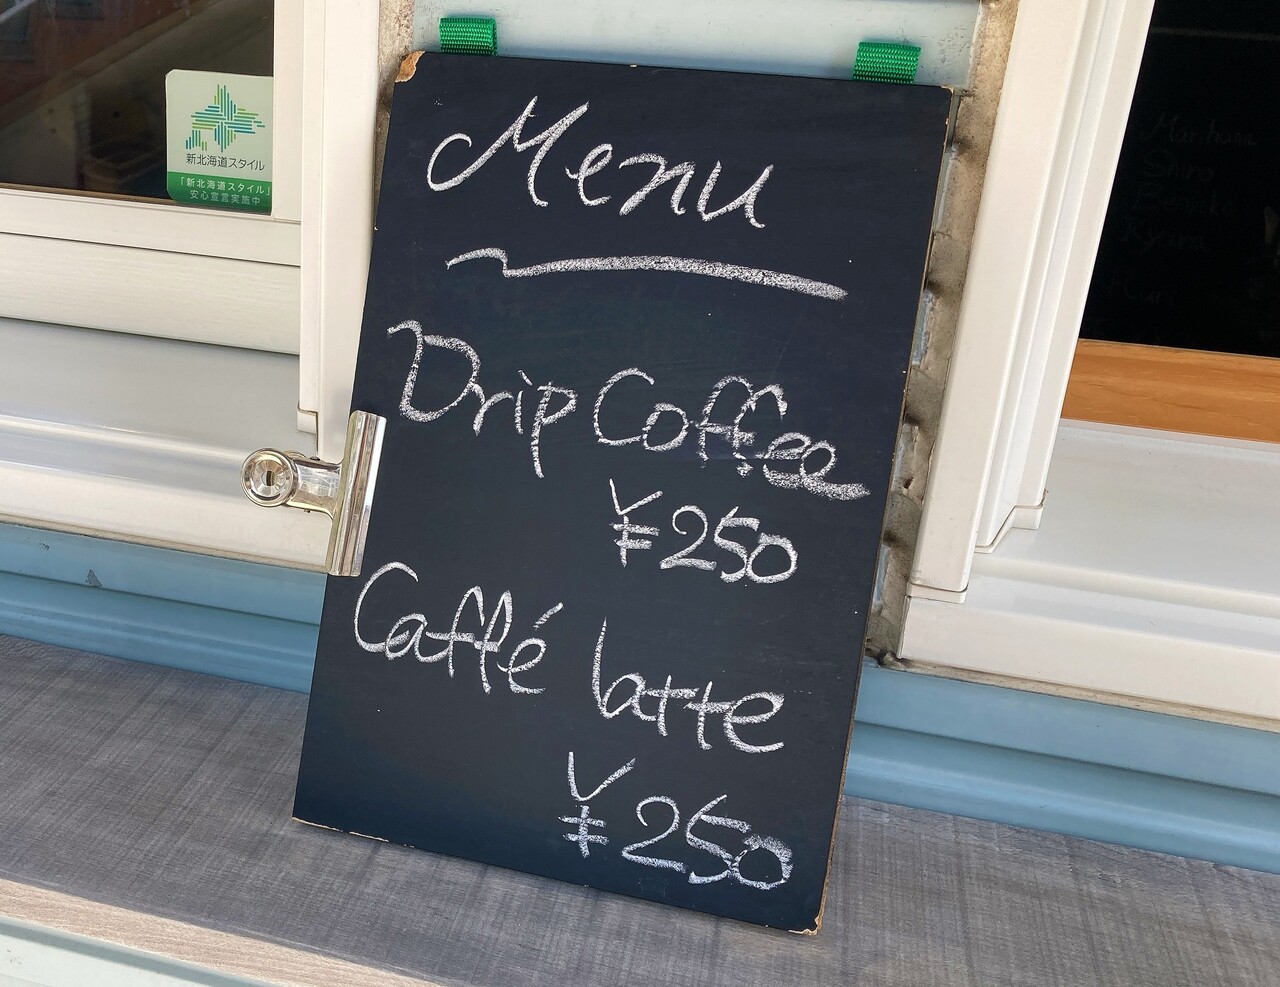 新北海道スタイル
「新北海道スタイル」
安心宣言実施中
Menu
Drip Coffee
¥250
Caffé latte
¥250
Shiro